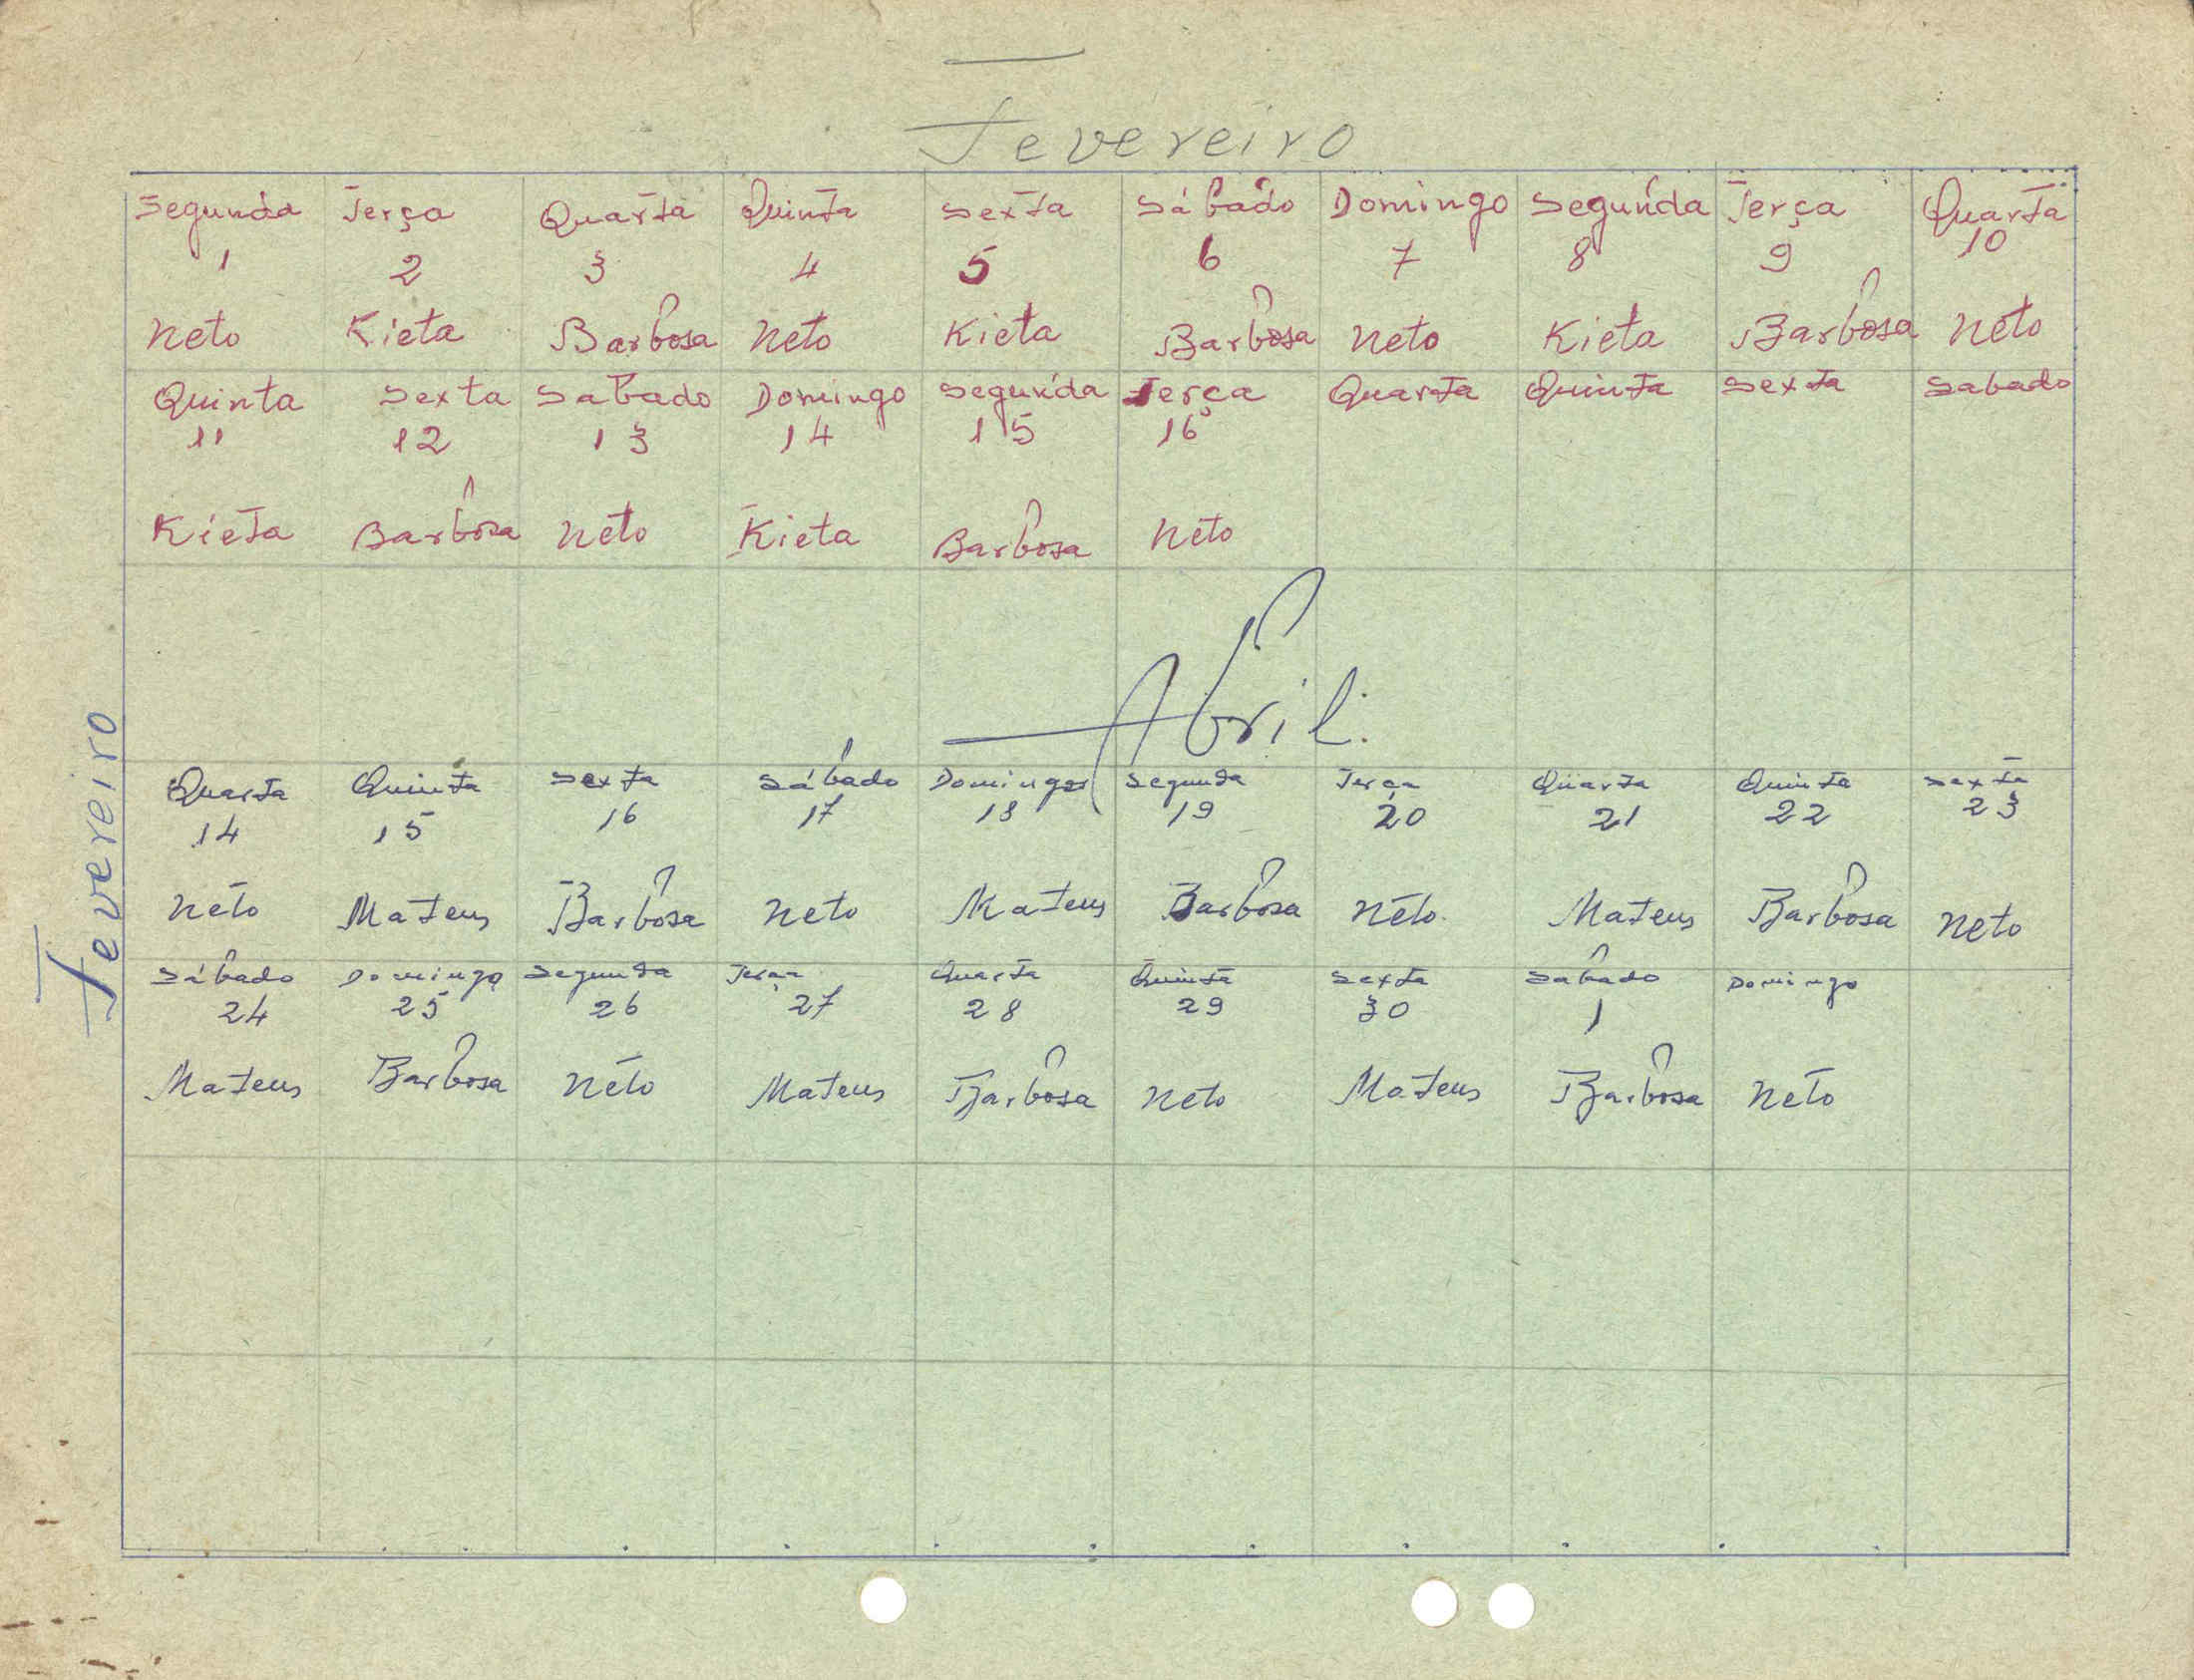 Fevereiro
Segunda Terça Quarta Quinta Sexta Sábado Domingo Segunda Terça Quarta
1 2 3 4 5 6 7 8 9 10
Neto Kieta Barbosa Neto Kieta Barbosa Neto Kieta Barbosa Neto
Quinta Sexta Sabado Domingo Segunda Terça Quarta Quinta Sexta Sabado
11 12 13 14 15 16
Kieta Barbosa Neto Kieta Barbosa Neto
Abril.
Quarta Quinta Sexta Sábado Domingo Segunda Terça Quarta Quinta Sexta
14 15 16 17 18 19 20 21 22 23
Neto Mateus Barbosa Neto Mateus Barbosa Neto. Mateus Barbosa Neto
Sábado Domingo Segunda Terça Quarta Quinta Sexta Sabado Domingo
24 25 26 27 28 29 30 1
Mateus Barbosa Neto Mateus Barbosa Neto Mateus Barbosa Neto
Fevereiro